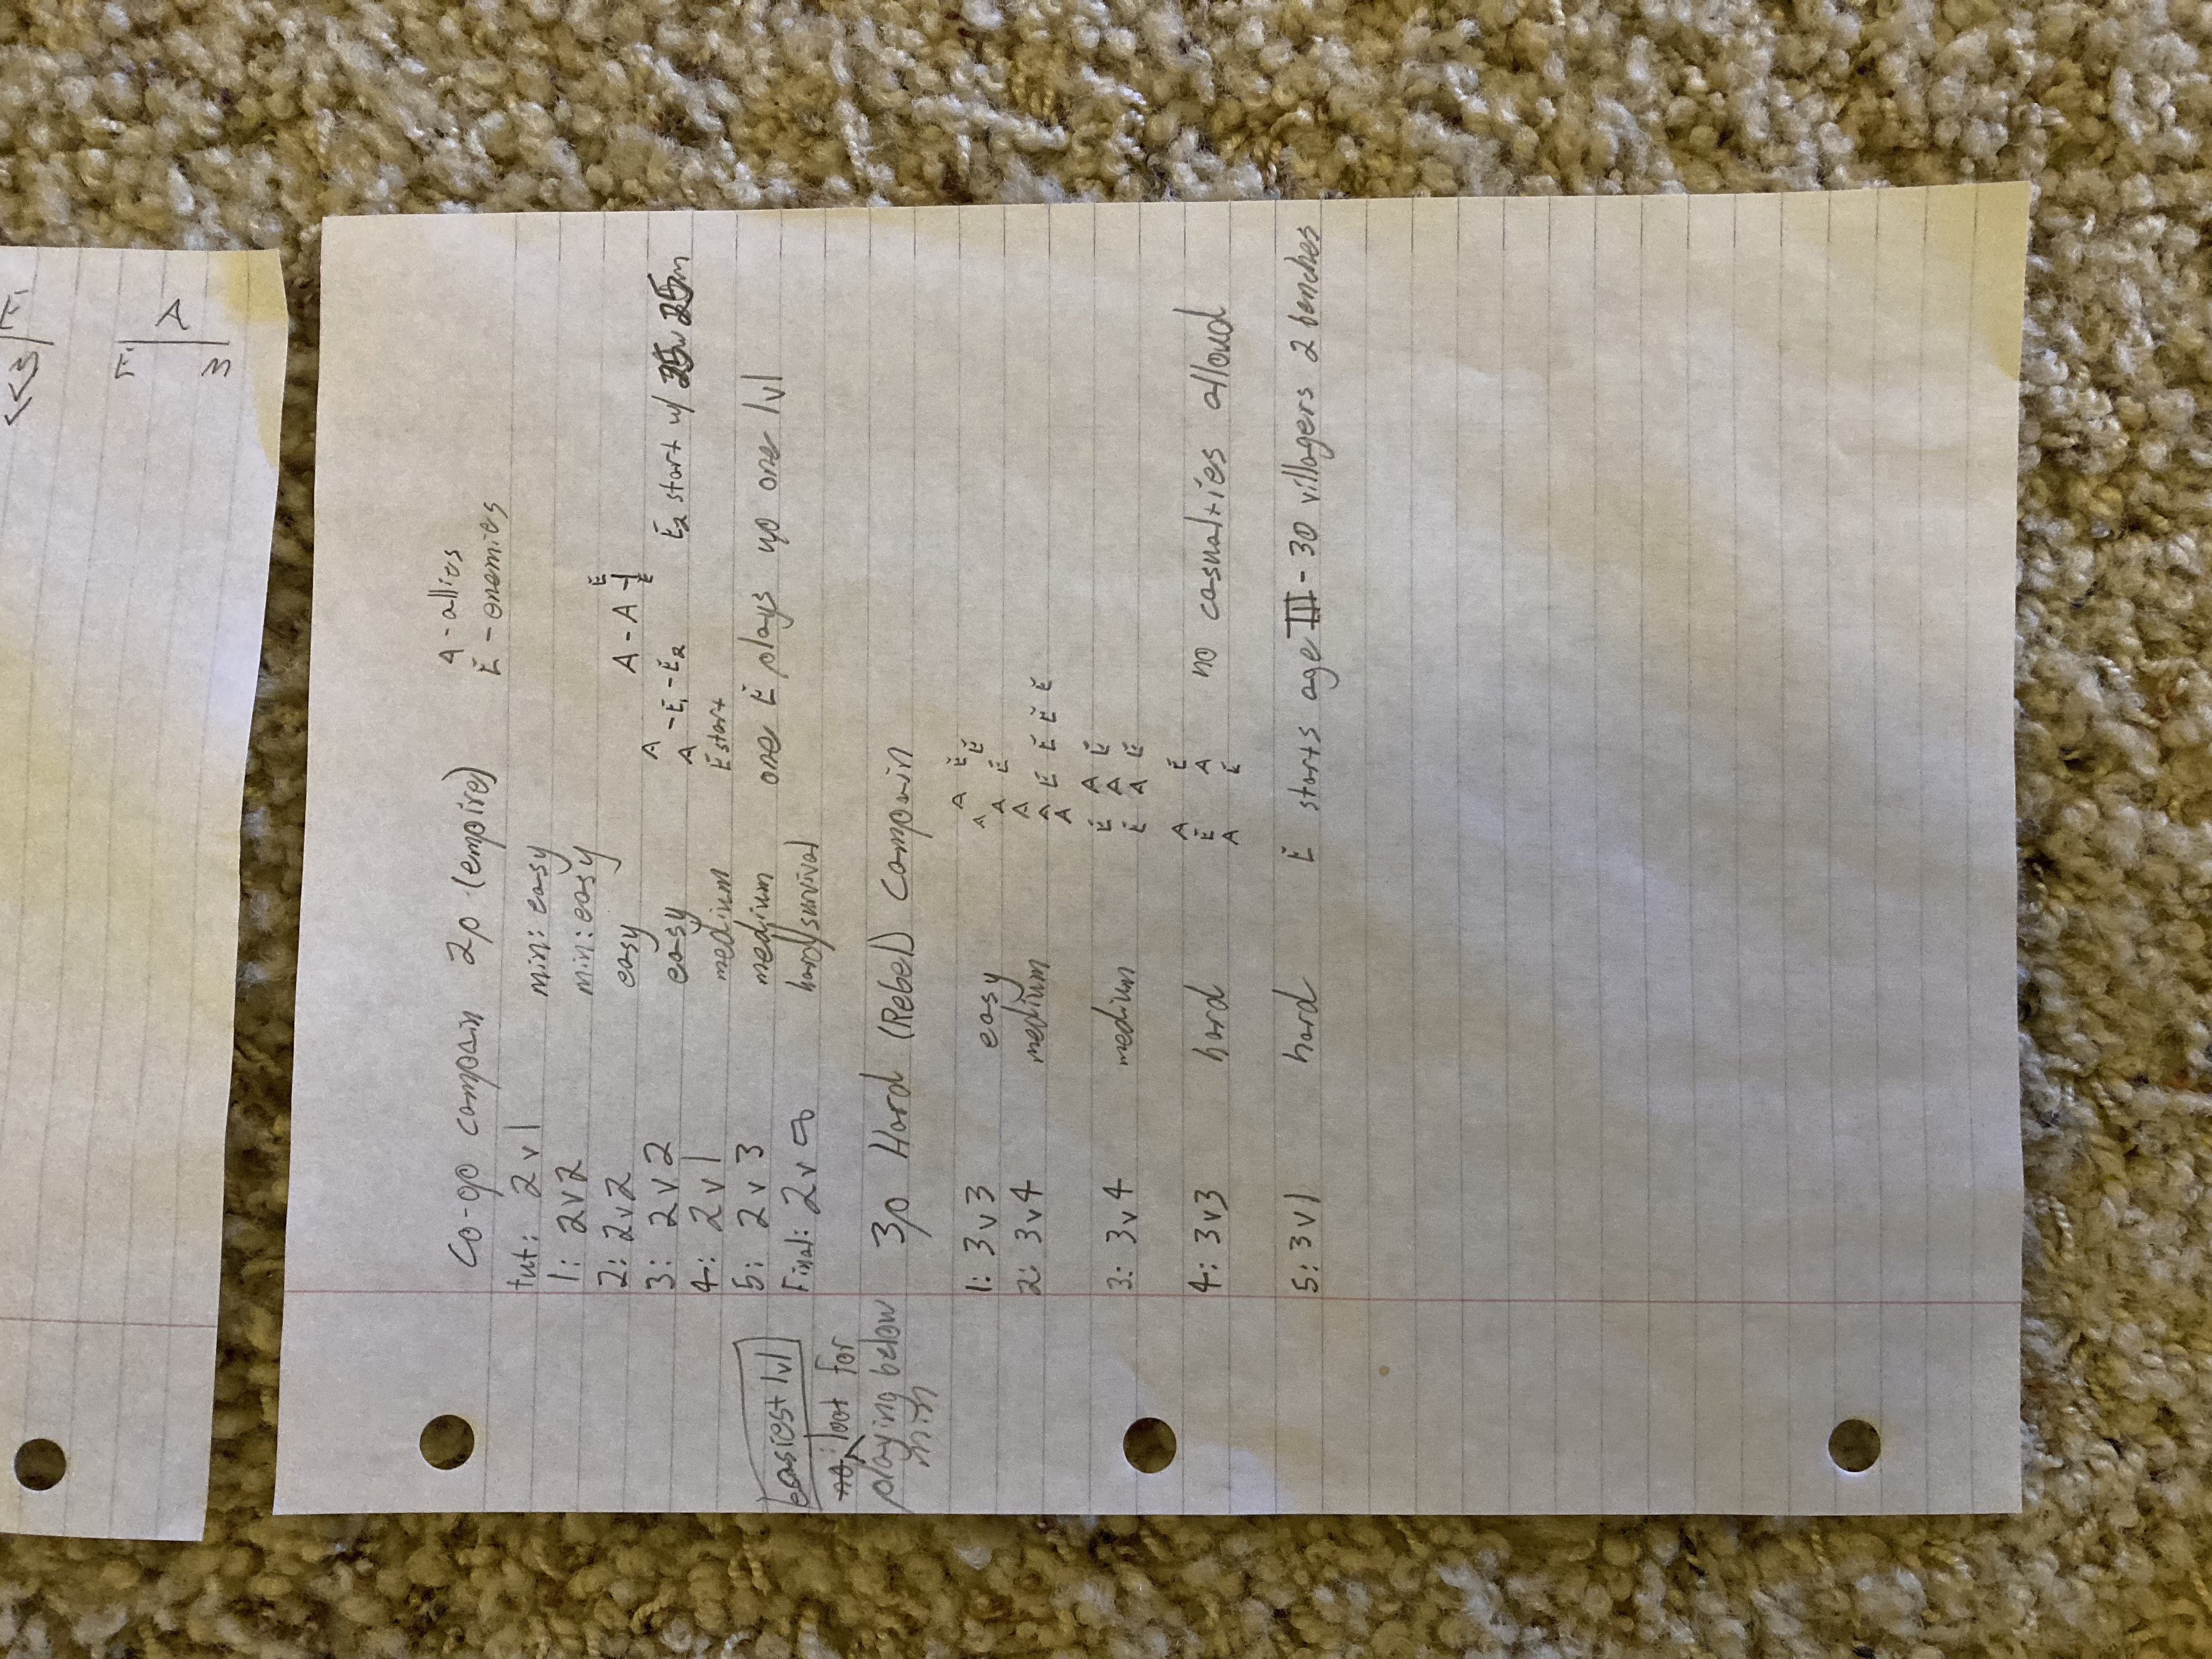 E
E
A
m
Co-op campain 2p (empire)
A - allies
E - enemies
tut: 2 v 1 min: easy
1: 2 v 2 min: easy
2: 2 v 2 easy A - A E
E
3: 2 v 2 easy A
A - E1 - E2 E2 start w/ 25w 25m
4: 2 v 1 medium E start
5: 2 v 3 medium one E plays up one lvl
Final: 2 v ∞ hard/survival
easiest lvl
no loot for
playing below
min
3p Hard (Rebel) Campain
A E
1: 3 v 3 easy A E
A E
A
2: 3 v 4 medium A E E E E
A
E A E
3: 3 v 4 medium A
E A E
A E
4: 3 v 3 hard E A no casualties alloud
A E
5: 3 v 1 hard E starts age III - 30 villagers 2 benches